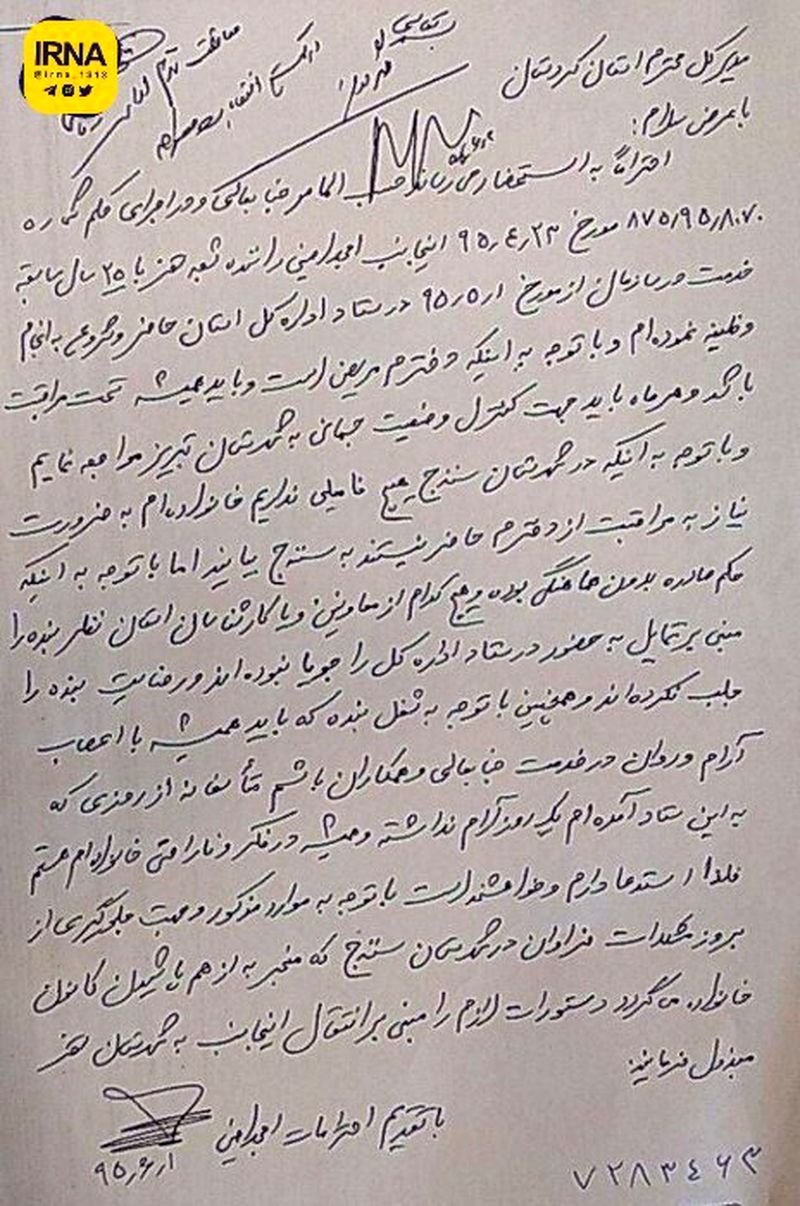 IRNA
@irna_1313
مدیر کل محترم استان کردستان
با عرض سلام:
احتراماً به استحضار می‌رساند حسب الامر جنابعالی و در اجرای حکم شماره
۸۷۵٫۹۵٫۸۰۷۰ مورخ ۹۵٫۴٫۲۳ اینجانب امجد امینی راننده شعبه سقز با ۲۵ سال سابقه
خدمت در سازمان از مورخ ۹۵٫۵٫۱ در ستاد اداره کل استان حاضر و شروع به انجام
وظیفه نموده‌ام و با توجه به اینکه دخترم مریض است و باید همیشه تحت مراقبت
باشد و هر ماه باید جهت کنترل وضعیت جسمانی به شهرستان تبریز مراجعه نمایم
و با توجه به اینکه در شهرستان سنندج هیچ فامیلی نداریم خانواده‌ام به ضرورت
نیاز به مراقبت از دخترم حاضر نیستند به سنندج بیایند اما با توجه به اینکه
حکم صادره بدون هماهنگی بوده و هیچ کدام از معاونین و یا کارشناسان استان نظر بنده را
مبنی بر تمایل به حضور در ستاد اداره کل را جویا نبوده اند و رضایت بنده را
جلب نکرده اند و همچنین با توجه به شغل بنده که باید همیشه با اعصاب
آرام و روان در خدمت جنابعالی و همکاران باشم متأسفانه از روزی که
به این ستاد آمده‌ام یک روز آرام نداشته و همیشه در فکر و ناراحتی خانواده‌ام هستم
فلذا استدعا دارم و خواهشمند است با توجه به موارد مذکور و جهت جلوگیری از
بروز مشکلات فراوان در شهرستان سنندج که منجر به از هم پاشیدن کانون
خانواده می‌گردد دستورات لازم را مبنی بر انتقال اینجانب به شهرستان سقز
مبذول فرمائید.
با تقدیم احترامات امجد امینی
۹۵٫۶٫۱
۷۲۸۳۴۶۳